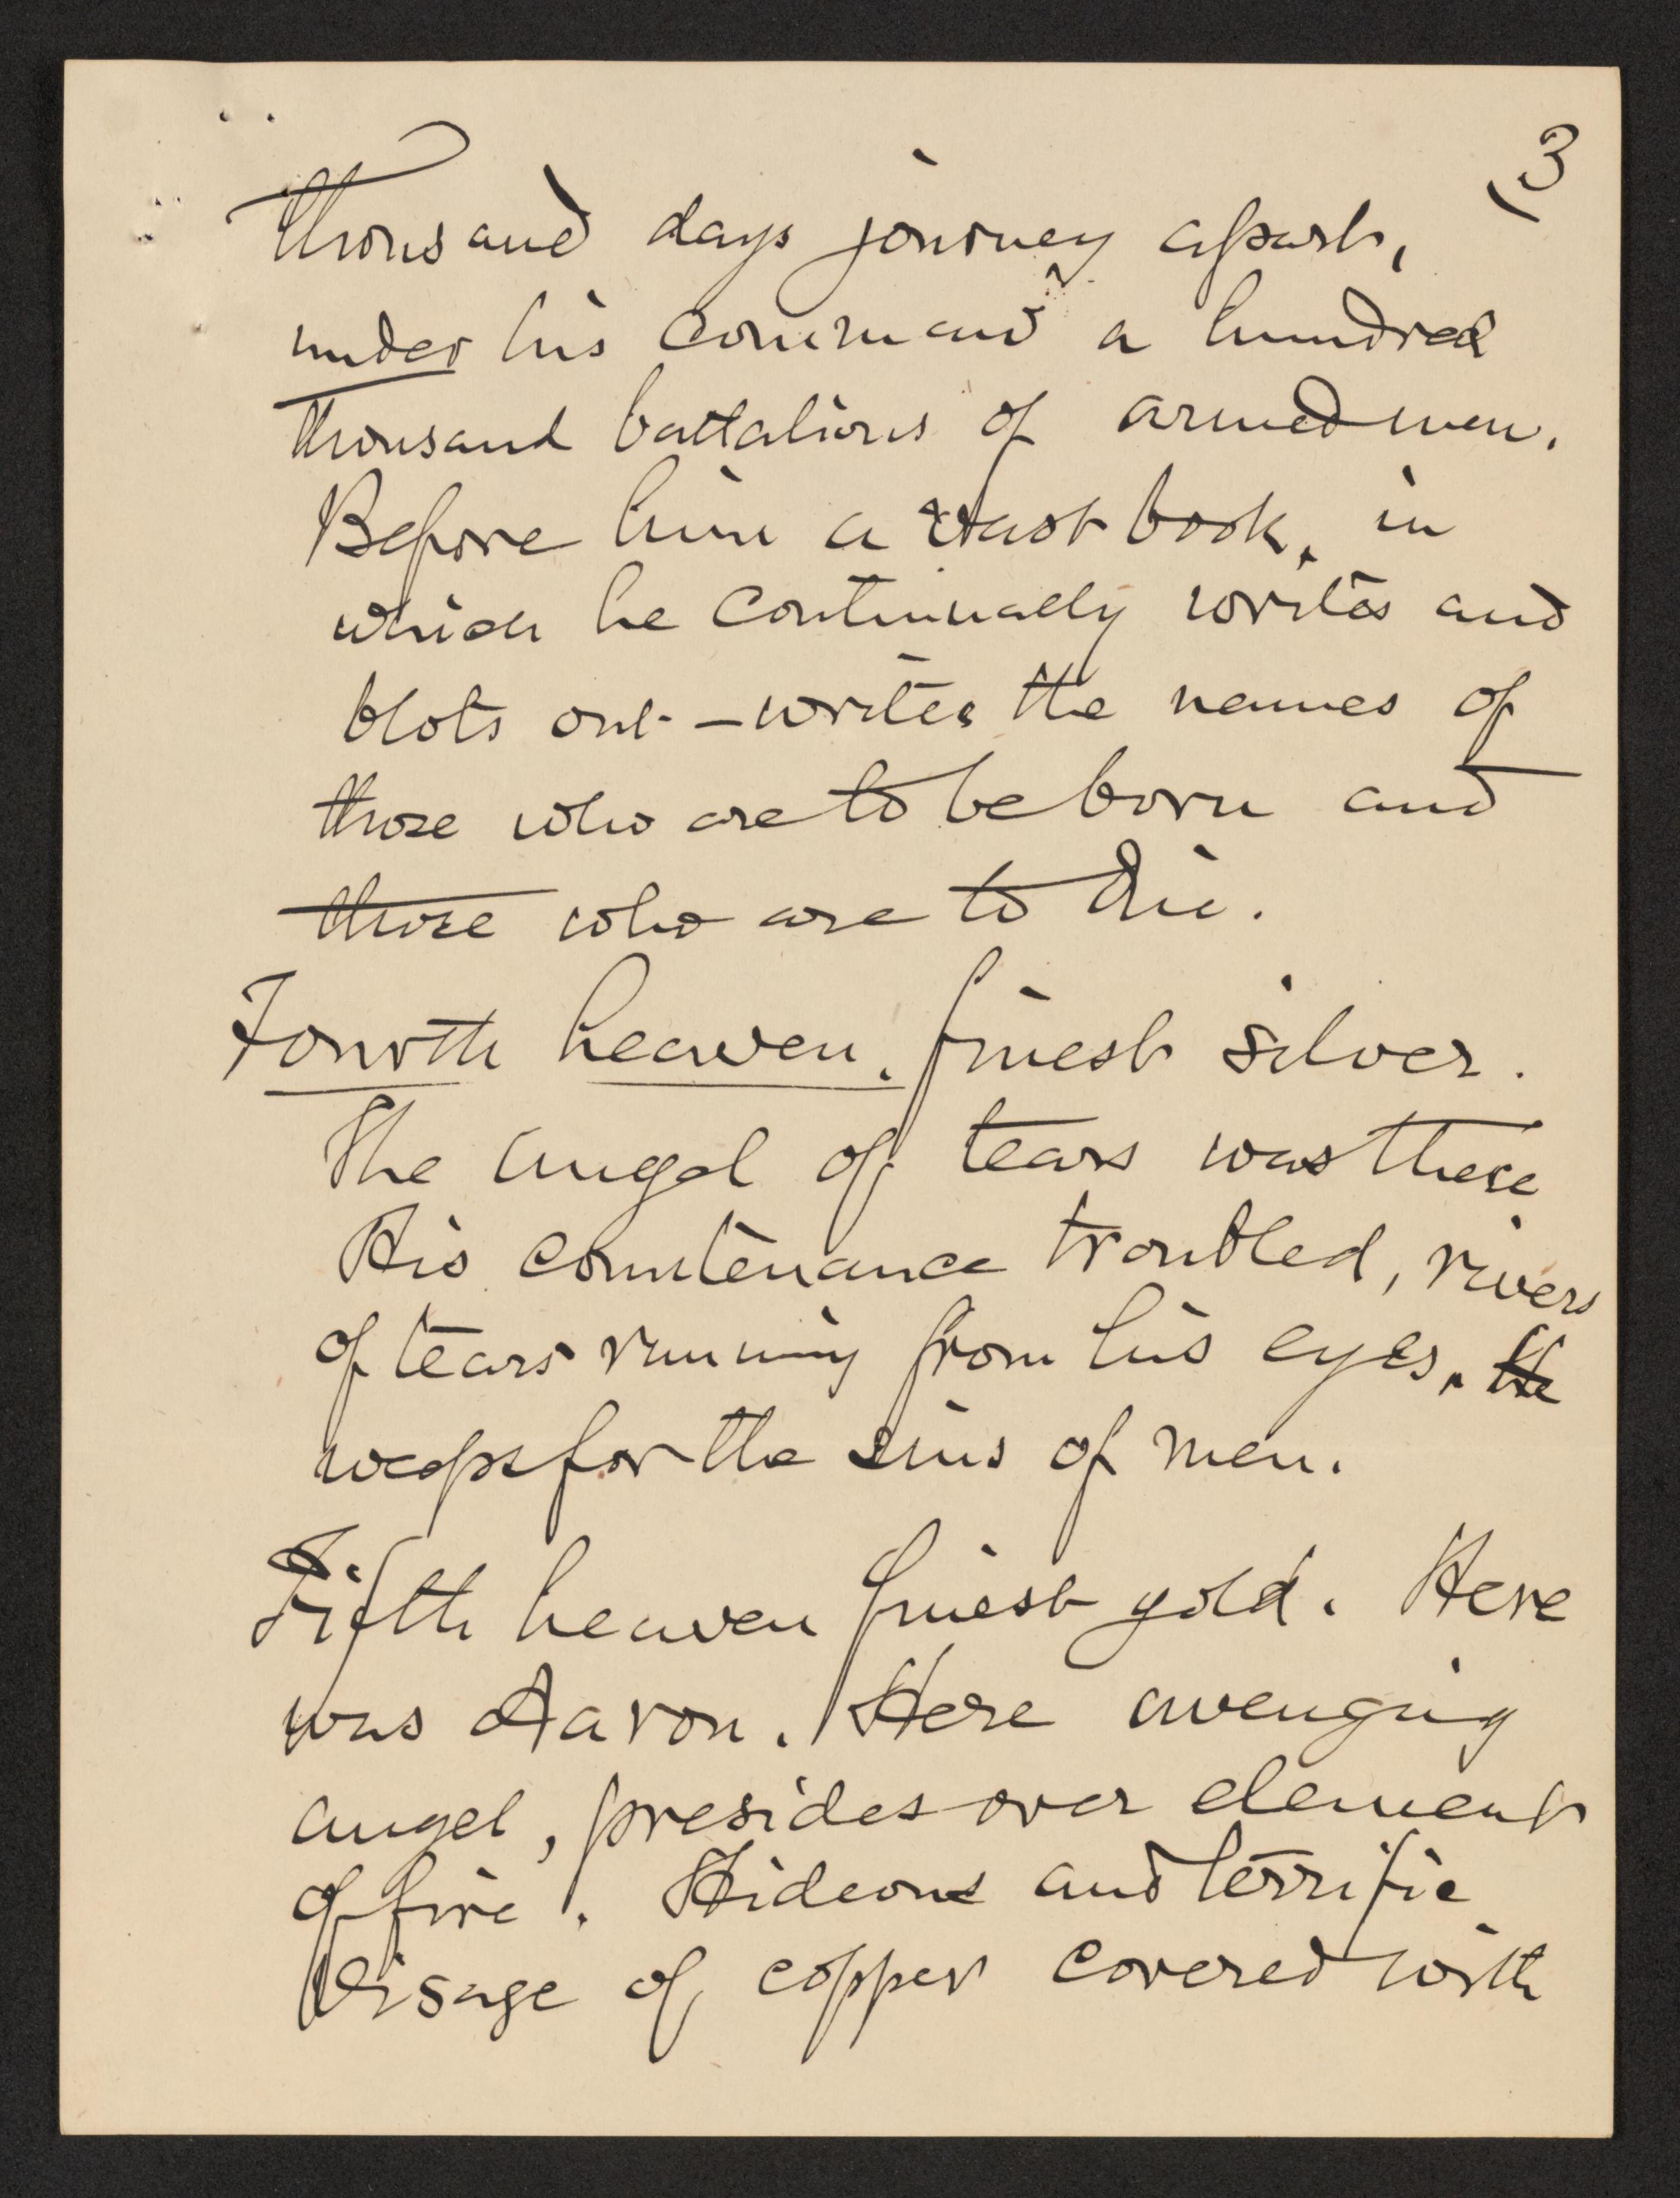 3
thousand days journey apart,
under his command a hundred
thousand battalions of armed men.
Before him a vast book, in
which he continually writes and
blots out - writes the names of
those who are to be born and
those who are to die.
Fourth heaven. finest silver.
The Angel of tears was there
His countenance troubled, rivers
of tears running from his eyes. He
weeps for the sins of men.
Fifth heaven finest gold. Here
was Aaron. Here avenging
angel, presides over element
of fire. Hideous and terrific
Visage of copper covered with